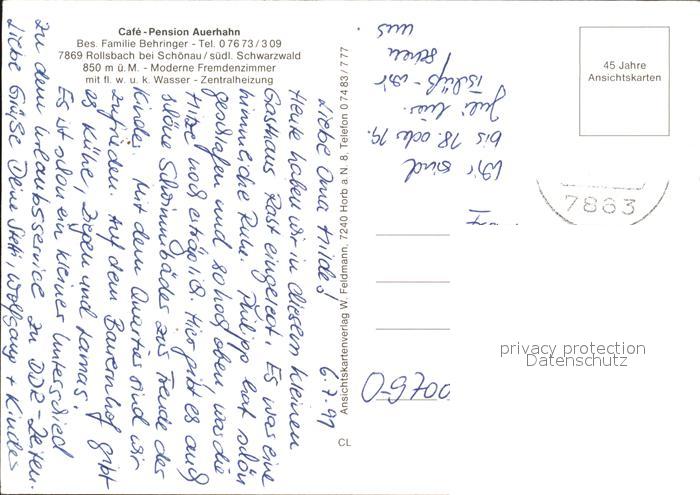 Café-Pension Auerhahn
Bes. Familie Behringer - Tel. 07673/309
7869 Rollsbach bei Schönau/südl. Schwarzwald
850 m ü.M. - Moderne Fremdenzimmer
mit fl. w. u. k. Wasser - Zentralheizung
6.7.91
Liebe Oma Hilde!
Heute haben wir in diesem kleinen
Gasthaus Rast eingelegt. Es war eine
himmlische Ruhe. Philipp hat schön
geschlafen und so hoch oben, war die
Hitze noch erträglich. Hier gibt es auch
schöne Schwimmbäder zur Freude der
Kinder. Mit dem Quartier sind wir
zufrieden. Auf dem Bauernhof gibt
es Kühe, Ziegen und Lamas.
Es ist schon ein kleiner Unterschied
zu dem Urlaubsservice zu DDR-Zeiten.
Liebe Grüße Deine Wolfgang + Kinder
Ansichtskartenverlag W. Feldmann, 7240 Horb a. N. 8, Telefon 07483/777
CL
Wir sind
bis 18 oder 19.
Juli hier.
Tschüß - wir
uns
45 Jahre
Ansichtskarten
7863
privacy protection
Datenschutz